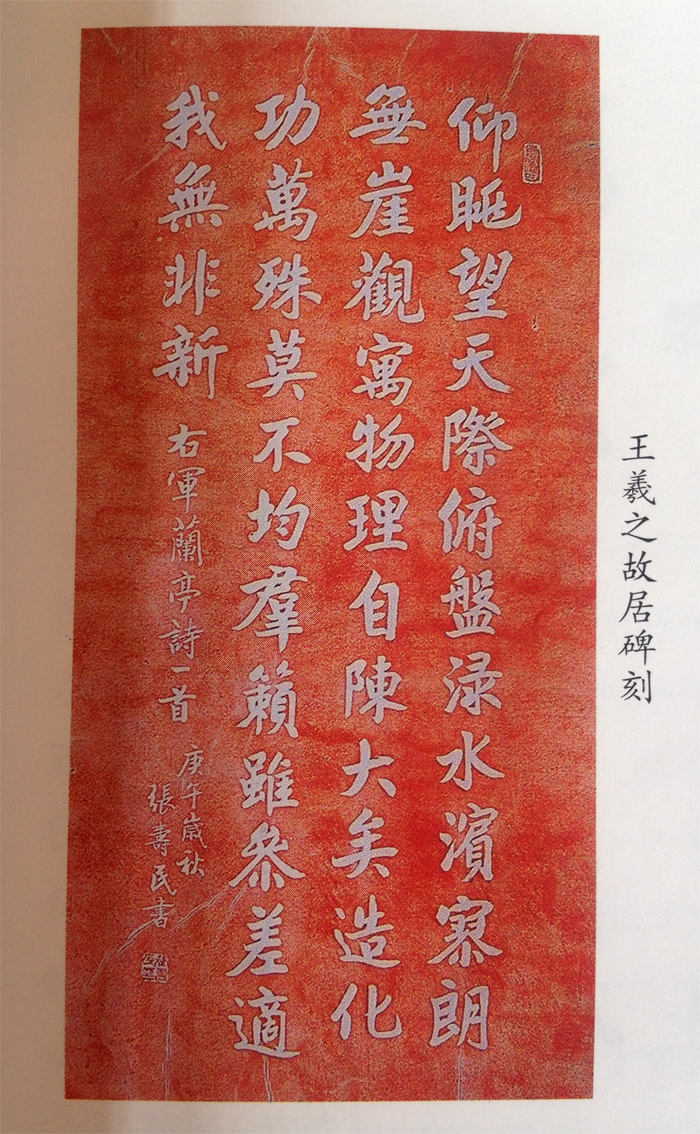 王羲之故居碑刻
仰眺望天際俯盤渌水濱寥朗
無崖觀寓物理自陳大矣造化
功萬殊莫不均羣籟雖叅差適
我無非新 右軍蘭亭詩一首
庚午歲秋
張壽民書